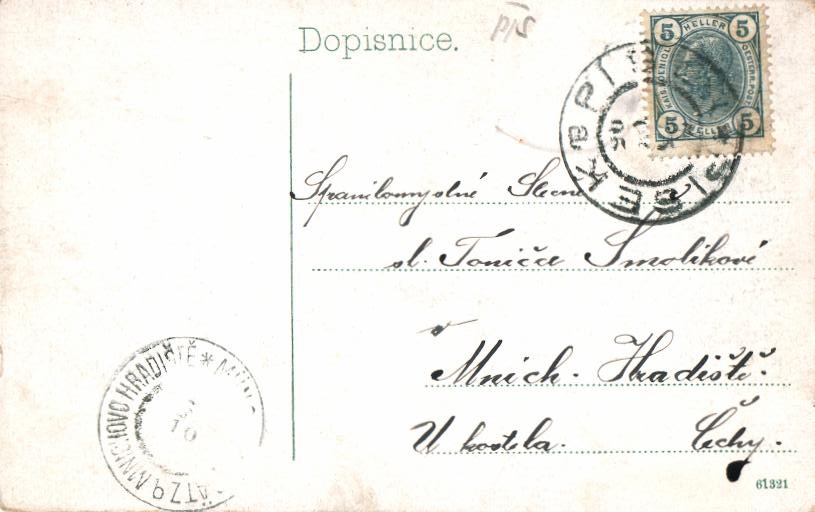 Dopisnice.
5 HELLER 5
KAIS. KOENIGL. OESTERR. POST
5 HELLER 5
PÍSEK
PISEK
Spanilomyslné Slečně
sl. Tonička Smolíkové
v
Mnich. Hradiště.
U kostela. Čechy.
MNICHOVO HRADIŠTĚ * MÜNCHENGRÄTZ
61321